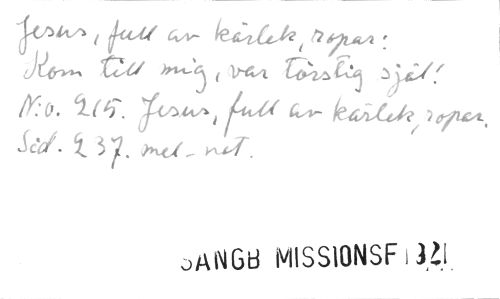 Jesus, full av kärlek, ropar:
Kom till mig, var törstig själ!
N:o. 215. Jesus, full av kärlek, ropar.
Sid. 237. mel-not.
SANGB MISSIONSF 1321